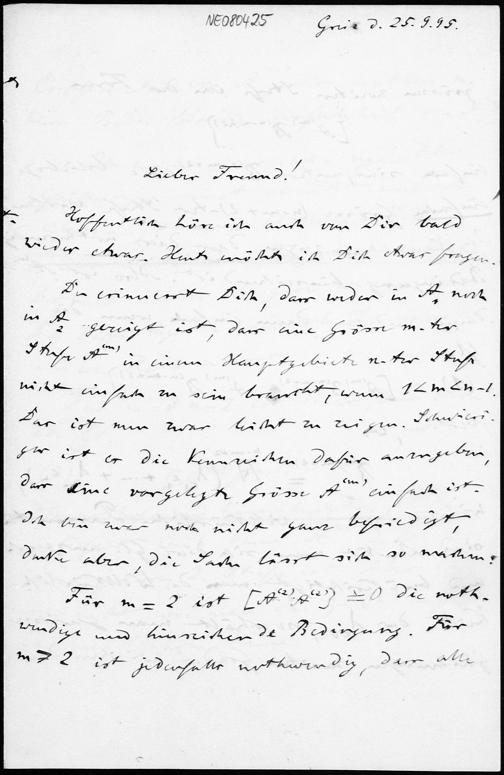 NE080425
d. 25.9.95.
Lieber Freund!
Hoffentlich höre ich auch von Dir bald
wieder etwas. Heute möchte ich Dich etwas fragen.
Du erinnerst Dich, dass weder in A₁ noch
in A₂ gezeigt ist, dass eine Grösse m-ter
Stufe A⁽ᵐ⁾ in einem Hauptgebiete n-ter Stufe
nicht einfach zu sein braucht, wenn 1<m<n-1.
Das ist nun zwar leicht zu zeigen. Schwieri-
ger ist es die Kennzeichen dafür anzugeben,
dass eine vorgelegte Grösse A⁽ᵐ⁾ einfach ist.
Ich bin zwar noch nicht ganz befriedigt,
denke aber, die Sache lässt sich so machen:
Für m = 2 ist [A⁽²⁾A⁽²⁾] = 0 die noth-
wendige und hinreichende Bedingung. Für
m > 2 ist jedenfalls nothwendig, dass alle